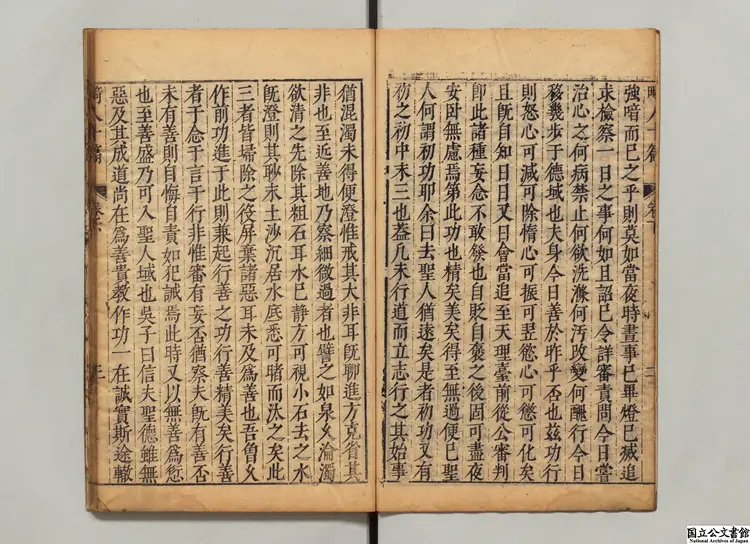 畸人十篇 卷下
強暗而已之乎則莫如當夜時晝事已畢燈已滅追
求檢察一日之事何如且詔已令詳審責問今日嘗
治心之何病禁止何欲洗滌何汚攻變何醜行今日
移幾步于德域也夫身今日善於昨乎否也茲功行
則怒心可減可除惰心可振可翌慾心可懲可化矣
且旣自知日日又日會當追至天理臺前從公審判
卽此諸種妄念不敢發也自貶自褒之後固可盡夜
安卧無慮焉第此功也精矣美矣得至無過便已聖
人何謂初功耶余曰去聖人猶遠矣是者初功又有
初之初中末三也葢凡未行道而立志行之其始事
猶混濁未得便澄惟戒其大非耳旣聊進方克省其
非也至近善地乃察細微過者也譬之如泉久淪濁
欲清之先除其粗石耳水已靜方可視小石去之水
旣澄則其眇末土沙沉居水底悉可睹而汰之矣此
三者皆埽除之役屏棄諸惡耳未及爲善也吾曾久
作前功進于此則兼起行善之功行善精美矣行善
者于念于言于行非惟審有妄否猶察夫旣有善否
未有善則自悔自責如犯誡焉此時又以無善爲愆
也至善盛乃可入聖人域也吳子曰信夫聖德雖無
惡及其成道尚在爲善貴教作功一在誠實斯途轍
畸人十篇 卷下
国立公文書館
National Archives of Japan